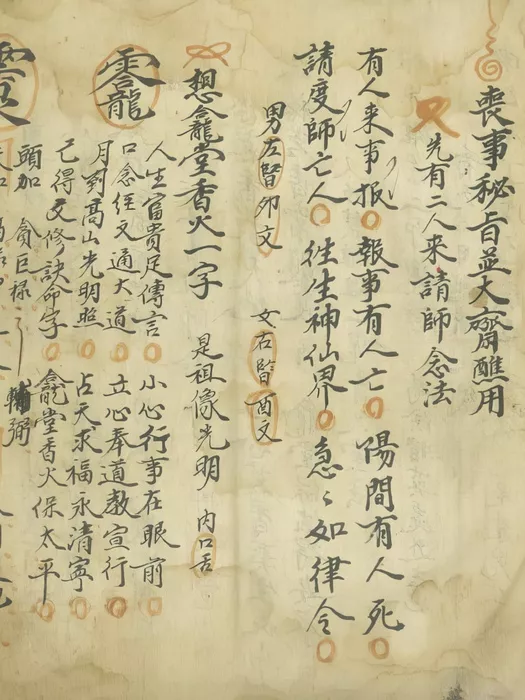 喪事秘旨並大齋醮用
先有二人来請師念法
有人来事报 報事有人亡 陽間有人死
請度師亡人 往生神仙界 急〻如律令
男左醫卯文 女右醫酉文
想龕堂香火一字 是祖像光明 内口舌
人生富貴足傳言 小心行事在眼前
口念经文通大道 立心奉道教宣行
月到高山光明照 占天求福永清寧
己得文修訣命字 龕堂香火保太平
頭加 貪巨禄 輔弼